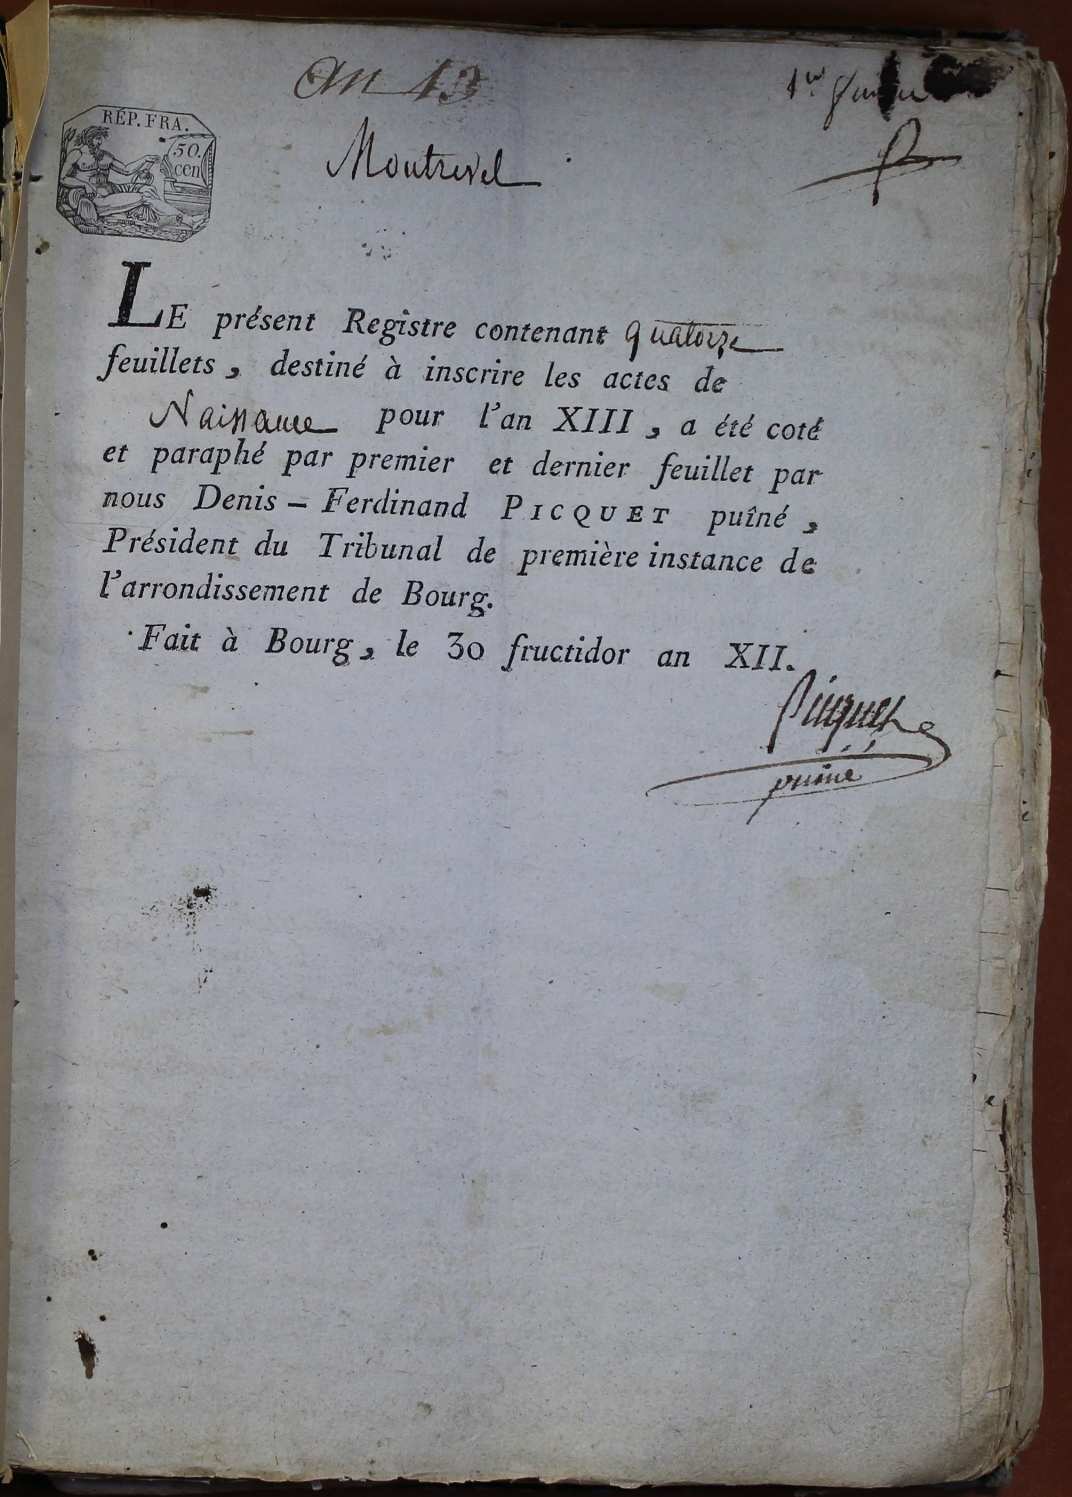 an 13
1er
RÉP. FRA.
50.
cen
Montrevel
LE présent Registre contenant quatorze
feuillets, destiné à inscrire les actes de
Naissance pour l'an XIII, a été coté
et paraphé par premier et dernier feuillet par
nous Denis - Ferdinand PICQUET puîné,
Président du Tribunal de première instance de
l'arrondissement de Bourg.
Fait à Bourg, le 30 fructidor an XII.
Picquet
puiné